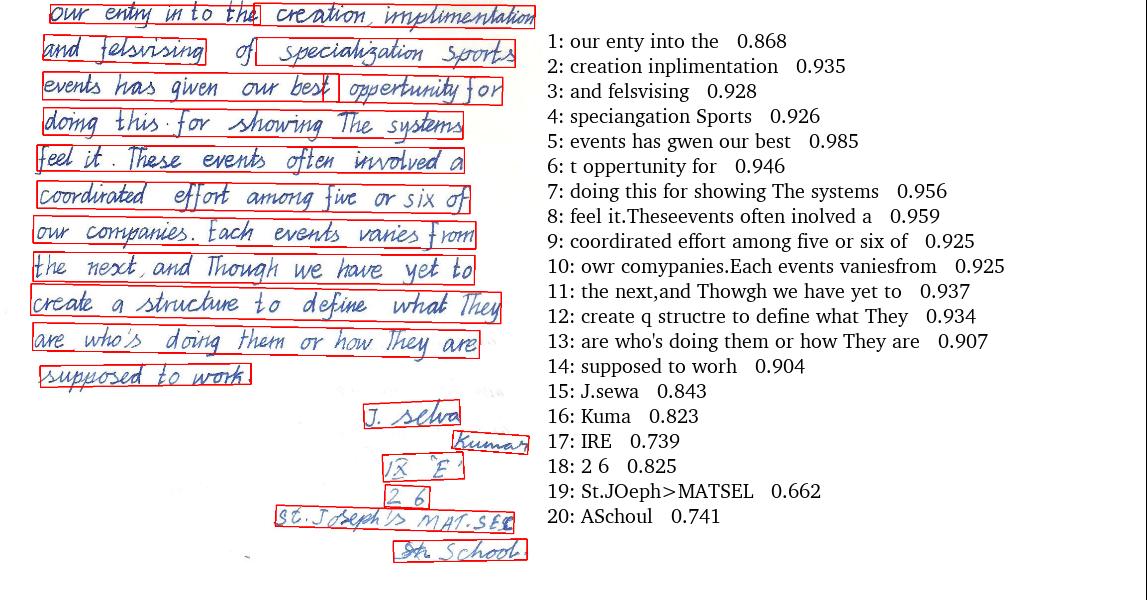 our entry in to the creation, implimentation
and felsvising of specialization sports
events has given our best opportunity for
doing this. for showing The systems
feel it. These events often involved a
coordirated effort among five or six of
our companies. Each events varies from
the next, and Though we have yet to
create a structure to define what They
are who's doing them or how They are
supposed to work.
J. selva
Kumar
IX "E"
2 6
St. Joseph's MAT. SEC
School.
1: our enty into the 0.868
2: creation inplimentation 0.935
3: and felsvising 0.928
4: speciangation Sports 0.926
5: events has gwen our best 0.985
6: t oppertunity for 0.946
7: doing this for showing The systems 0.956
8: feel it.Theseevents often inolved a 0.959
9: coordirated effort among five or six of 0.925
10: owr comypanies.Each events vaniesfrom 0.925
11: the next,and Thowgh we have yet to 0.937
12: create q structre to define what They 0.934
13: are who's doing them or how They are 0.907
14: supposed to worh 0.904
15: J.sewa 0.843
16: Kuma 0.823
17: IRE 0.739
18: 2 6 0.825
19: St.JOeph>MATSEL 0.662
20: ASchoul 0.741